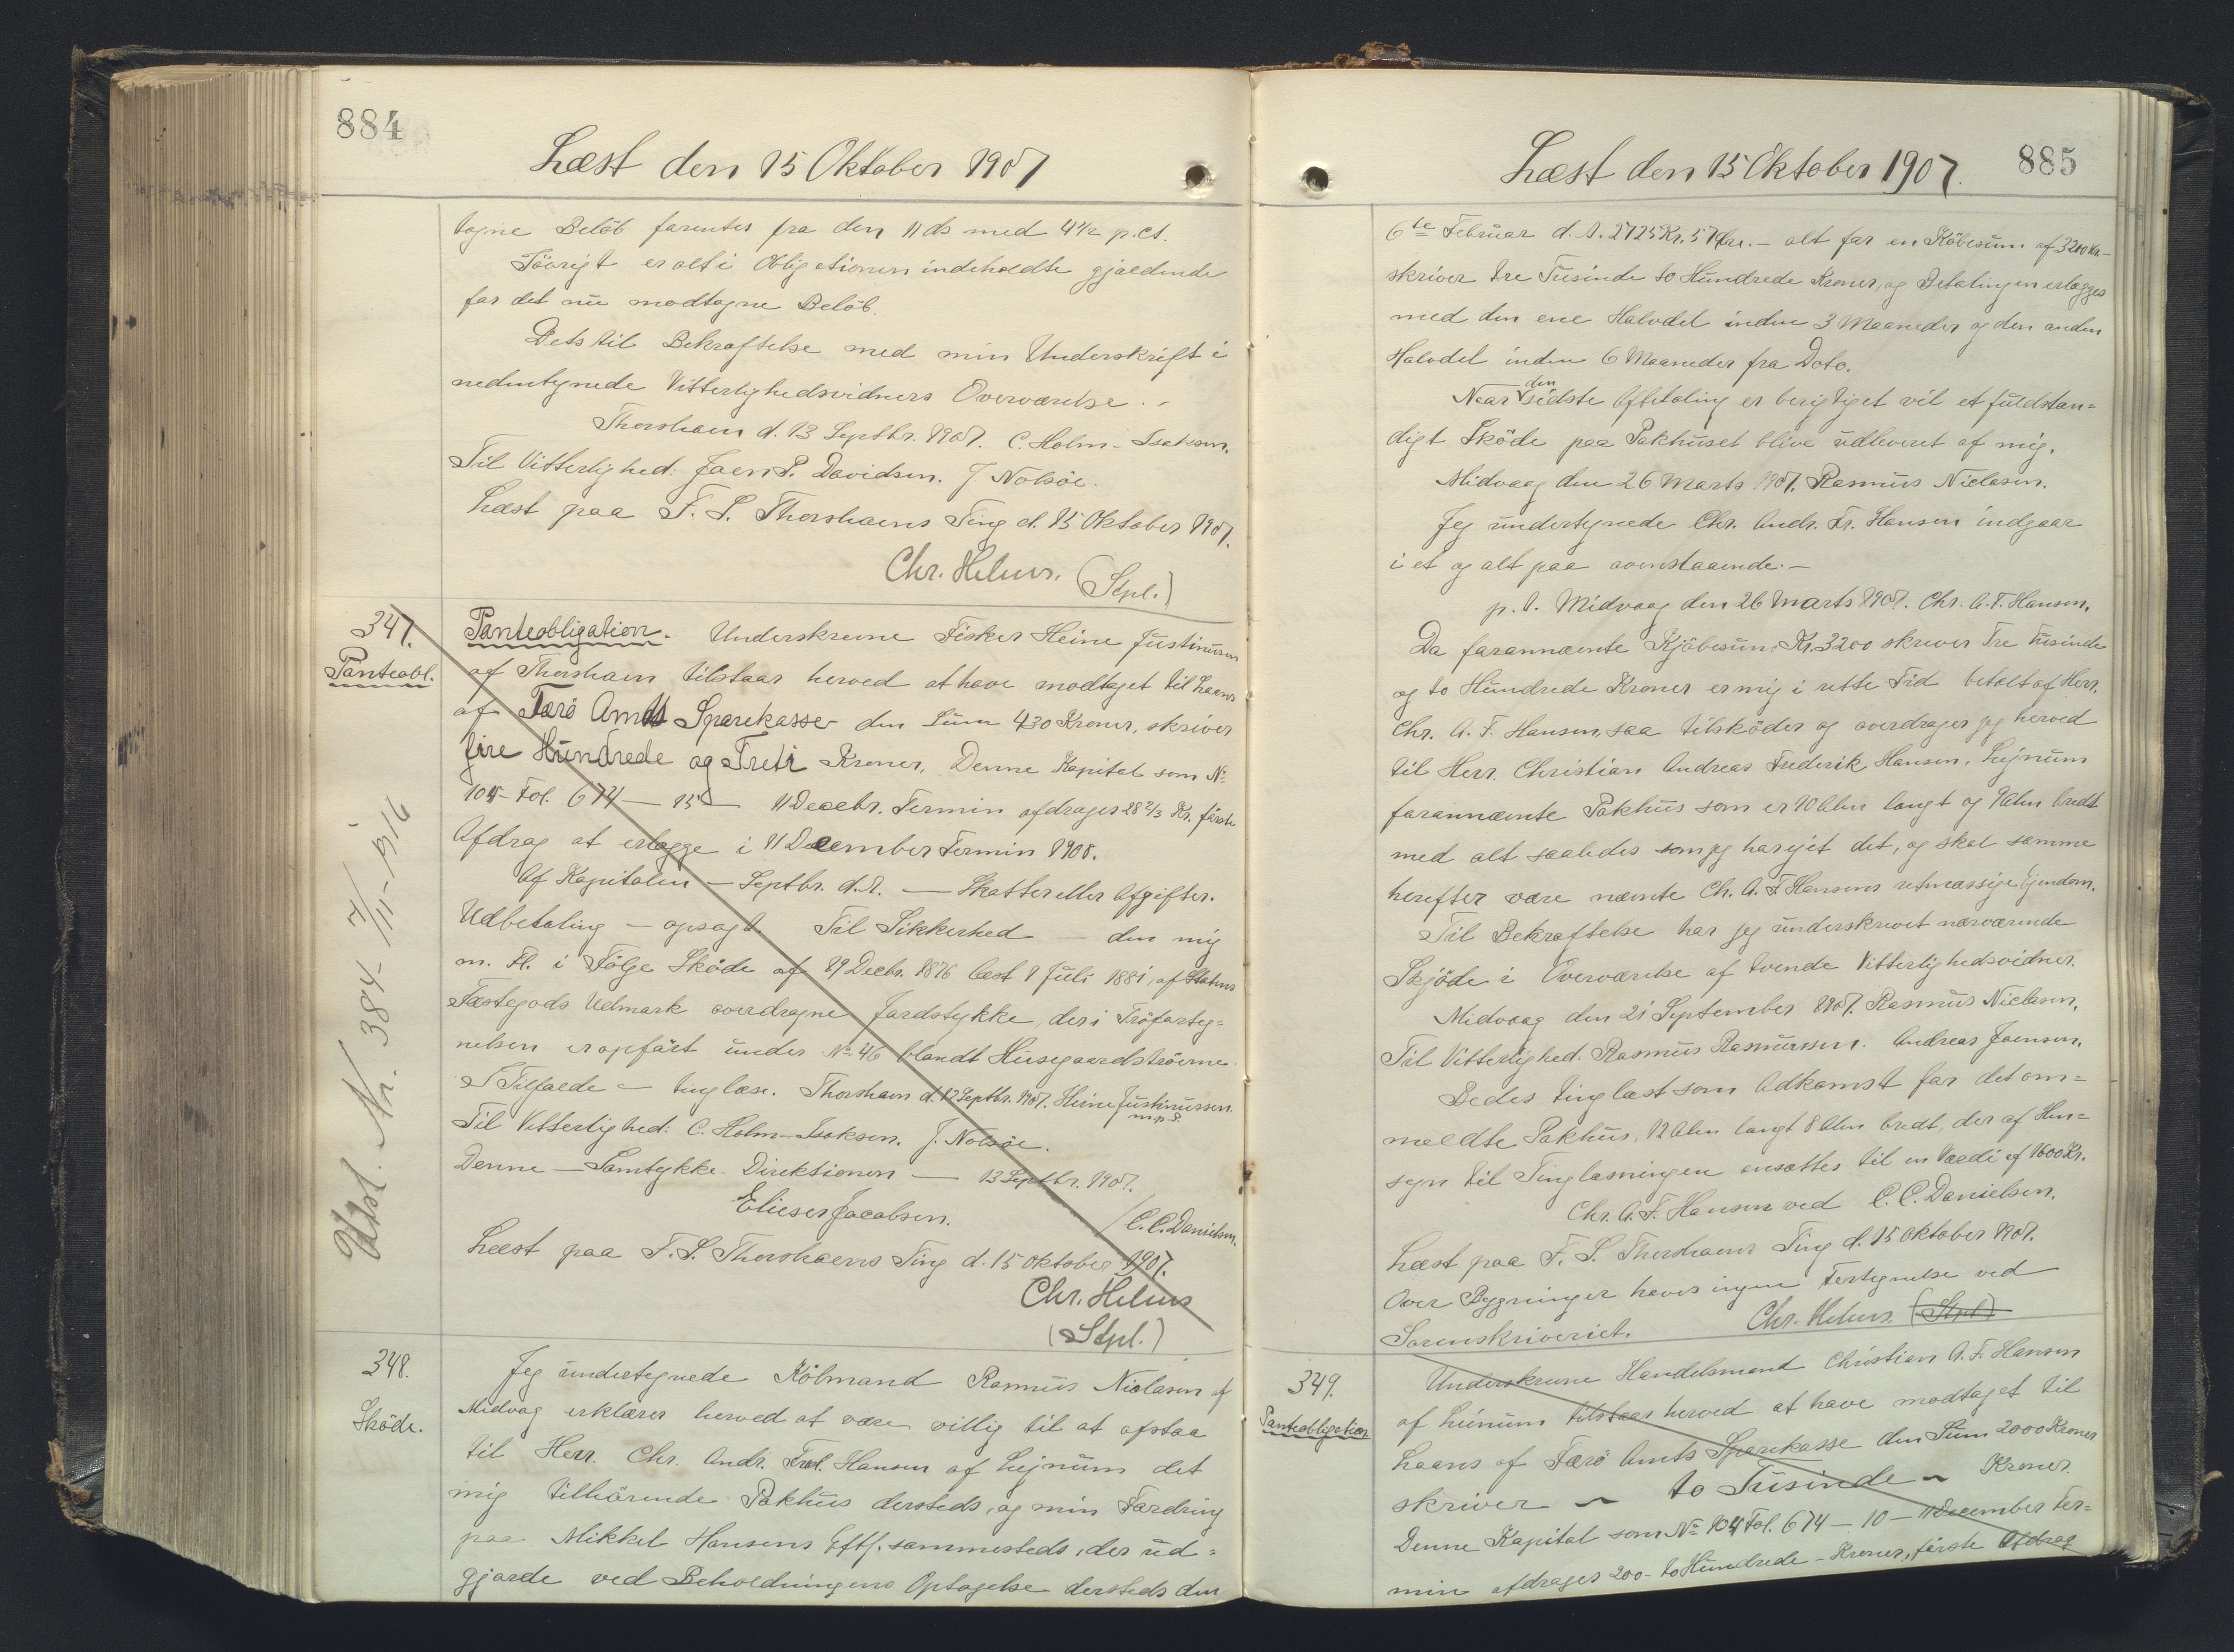 884
Læst den 15 Oktober 1907
tagne Belöb forrentes fra den 11 ds med 4 1/2 p.ct.
Iövrigt er alt i Obligationen indeholdte gjældende
for det nu modtagne Belöb.
Dets til Bekræftelse med min Underskrift i
nedentegnede Vitterlighedsvidners Overværelse.-
Thorshavn d. 13 Septbr. 1907. C. Holm-Isaksen.
Til Vitterlighed: Joen P. Davidsen. J. Nolsöe.
Læst paa F. S. Thorshavns Ting d. 15 Oktober 1907.
Chr. Helms.
(Stpl.)
347.
Panteobl.
Panteobligation. Underskrevne Fisker Heine Justinussen
af Thorshavn tilstaar herved at have modtaget til Laans
af Færö Amts Sparekasse den Sum 430 Kroner, skriver
fire Hundrede og Treti Kroner. Denne Kapital som No
104 Fol. 674 — 15 — 11 Decebr. Termin afdrages 28 2/3 Kr. förste
Afdrag at erlægge i 11 December Termin 1908.
Af Kapitalen — Septbr. d.A. — Skatter eller Afgifter.
Udbetaling — opsagt. Til Sikkerhed — den mig
m. Fl. i Fölge Sköde af 19 Decbr. 1876 læst 1 Juli 1881, af Statens
Fæstegods Udmark overdragne Jordstykke, der i Tröfarteg=
nelsen er opfört under No 46 blandt Husegaardströerne.
I Tilfælde — tinglæse. Thorshavn d. 12 Septbr. 1907. Heine Justinussen
m.p.S.
Til Vitterlighed: C. Holm-Isaksen. J. Nolsöe.
Denne — Samtykke. Direktionen — 13 Septbr. 1907.
Elieser Jacobsen.
/ C. C. Danielsen.
Læst paa F. S. Thorshavns Ting d. 15 Oktober 1907.
Chr. Helms
(Stpl.)
Udsl. Nr. 384- 7/III-1916
348.
Sköde.
Jeg undertegnede Köbmand Rasmus Niclasen af
Midvag erklærer herved at være villig til at afstaa
til Herr. Chr. Andr. Fred. Hansen af Lejnum det
mig tilhörende Pakhus dersteds, og min Fordring
paa Mikkel Hansens Eftf. sammesteds, der ud=
gjorde ved Beholdningens Optagelse dersteds den
885
Læst den 15 Oktober 1907.
6te Februar d. A. 2725 Kr. 57 Öre.- alt for en Köbesum af 3200 Kr.-
skriver tre Tusinde to Hundrede Kroner, og Betalingen erlægges
med den ene Halvdel inden 3 Maaneder og den anden
Halvdel inden 6 Maaneder fra Dato.
Naar den sidste Afbetaling er berigtiget vil et fuldstæn=
digt Sköde paa Pakhuset blive udleveret af mig.
Midvaag den 26 Marts 1907. Rasmus Niclasen.
Jeg undertegnede Chr. Andr. Fr. Hansen indgaar
i et og alt paa ovenstaaende.-
p. t. Midvaag den 26 Marts 1907. Chr. A. F. Hansen.
Da forannævnte Kjöbesum, Kr. 3200 skriver Tre Tusinde
og to Hundrede Kroner er mig i rette Tid betalt af Herr.
Chr. A. F. Hansen, saa tilsköder og overdrager jeg herved
til Herr. Christian Andreas Frederik Hansen, Lejnum
forannævnte Pakhus som er 10 Alen langt og 9 Alen bredt
med alt saaledes som jeg har ejet det, og skal samme
herefter være nævnte Ch. A. F. Hansens retmæssige Ejendom.
Til Bekræftelse har jeg underskrevet nærværende
Skjöde i Overværelse af tvende Vitterlighedsvidner.
Midvaag den 21 September 1907. Rasmus Niclasen.
Til Vitterlighed. Rasmus Rasmussen. Andreas Joensen.
Bedes tinglæst som Adkomst for det om=
meldte Pakhus, 12 Alen langt 8 Alen bredt, der af Hen=
syn til Tinglæsningen ansættes til en Værdi af 1600 Kr.
Chr. A. F. Hansen ved C. C. Danielsen.
Læst paa F. S. Thorshavns Ting d. 15 Oktober 1907.
Over Bygninger haves ingen Fortegnelse ved
Sorenskriveriet.
Chr. Helms. (Stpl)
349.
Panteobligation
Underskrevne Handelsmand Christian A. F. Hansen
af Leinum tilstaar herved at have modtaget til
Laans af Færö Amts Sparekasse den Sum 2000 Kroner
skriver ~ to Tusinde ~ Kroner.
Denne Kapital som No 104 Fol. 674 — 10 — 11 December Ter=
min afdrages 200 - to Hundrede - Kroner, förste Afdrag